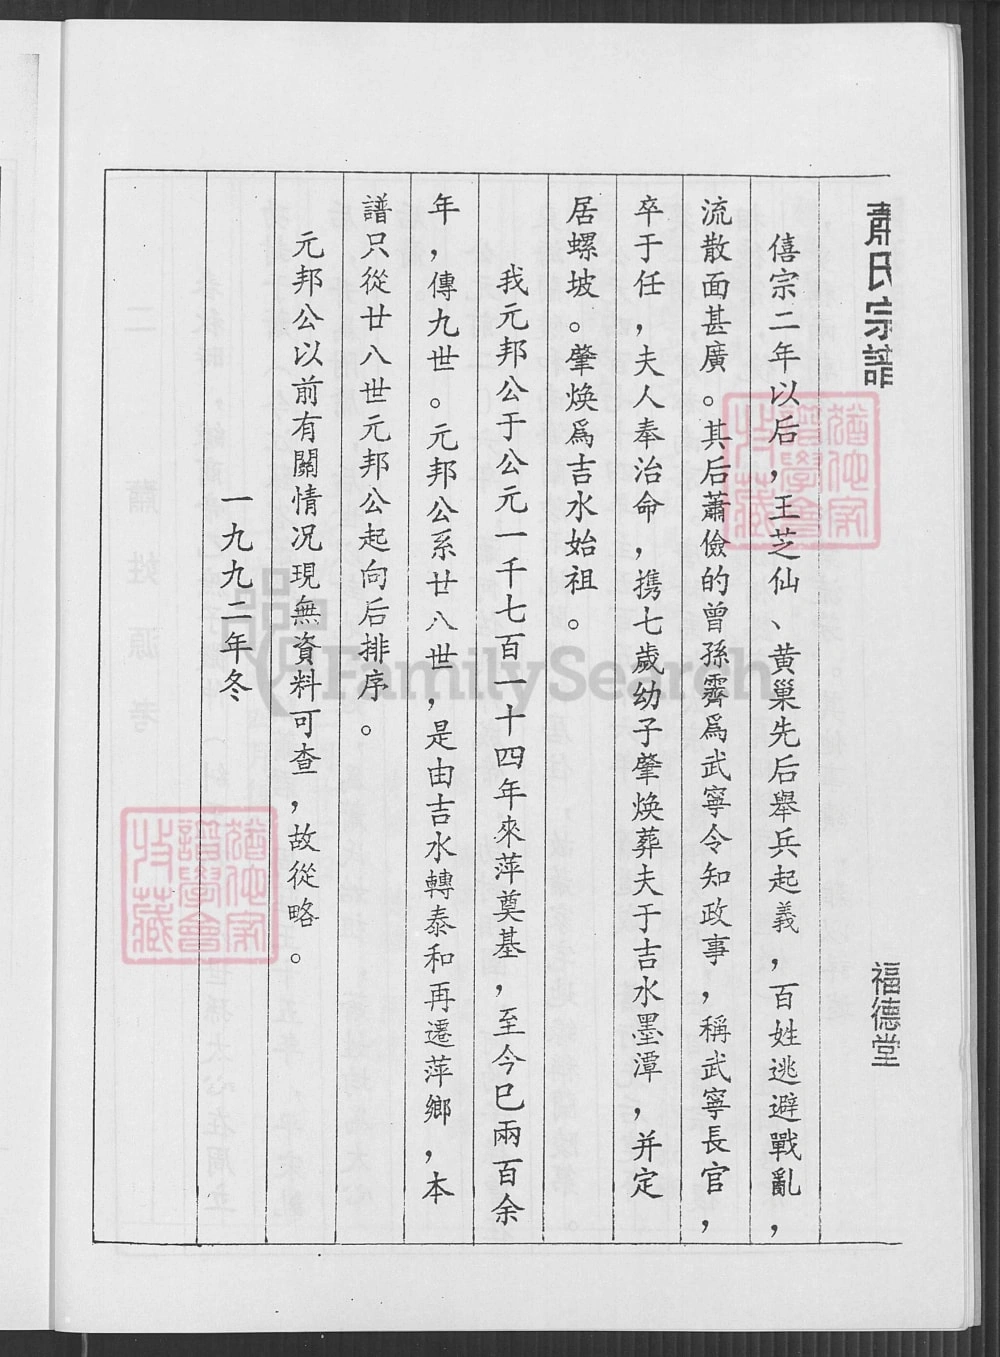 蕭氏宗譜
福德堂
僖宗二年以后，王芝仙、黄巢先后舉兵起義，百姓逃避戰亂，
流散面甚廣。其后蕭儉的曾孫霽爲武寧令知政事，稱武寧長官，
卒于任，夫人奉治命，携七歲幼子肇焕葬夫于吉水墨潭，并定
居螺坡。肇焕爲吉水始祖。
我元邦公于公元一千七百一十四年來萍奠基，至今巳兩百余
年，傳九世。元邦公系廿八世，是由吉水轉泰和再遷萍鄉，本
譜只從廿八世元邦公起向后排序。
元邦公以前有關情况現無資料可查，故從略。
一九九二年冬
FamilySearch
譜學會
收藏
譜學會
收藏